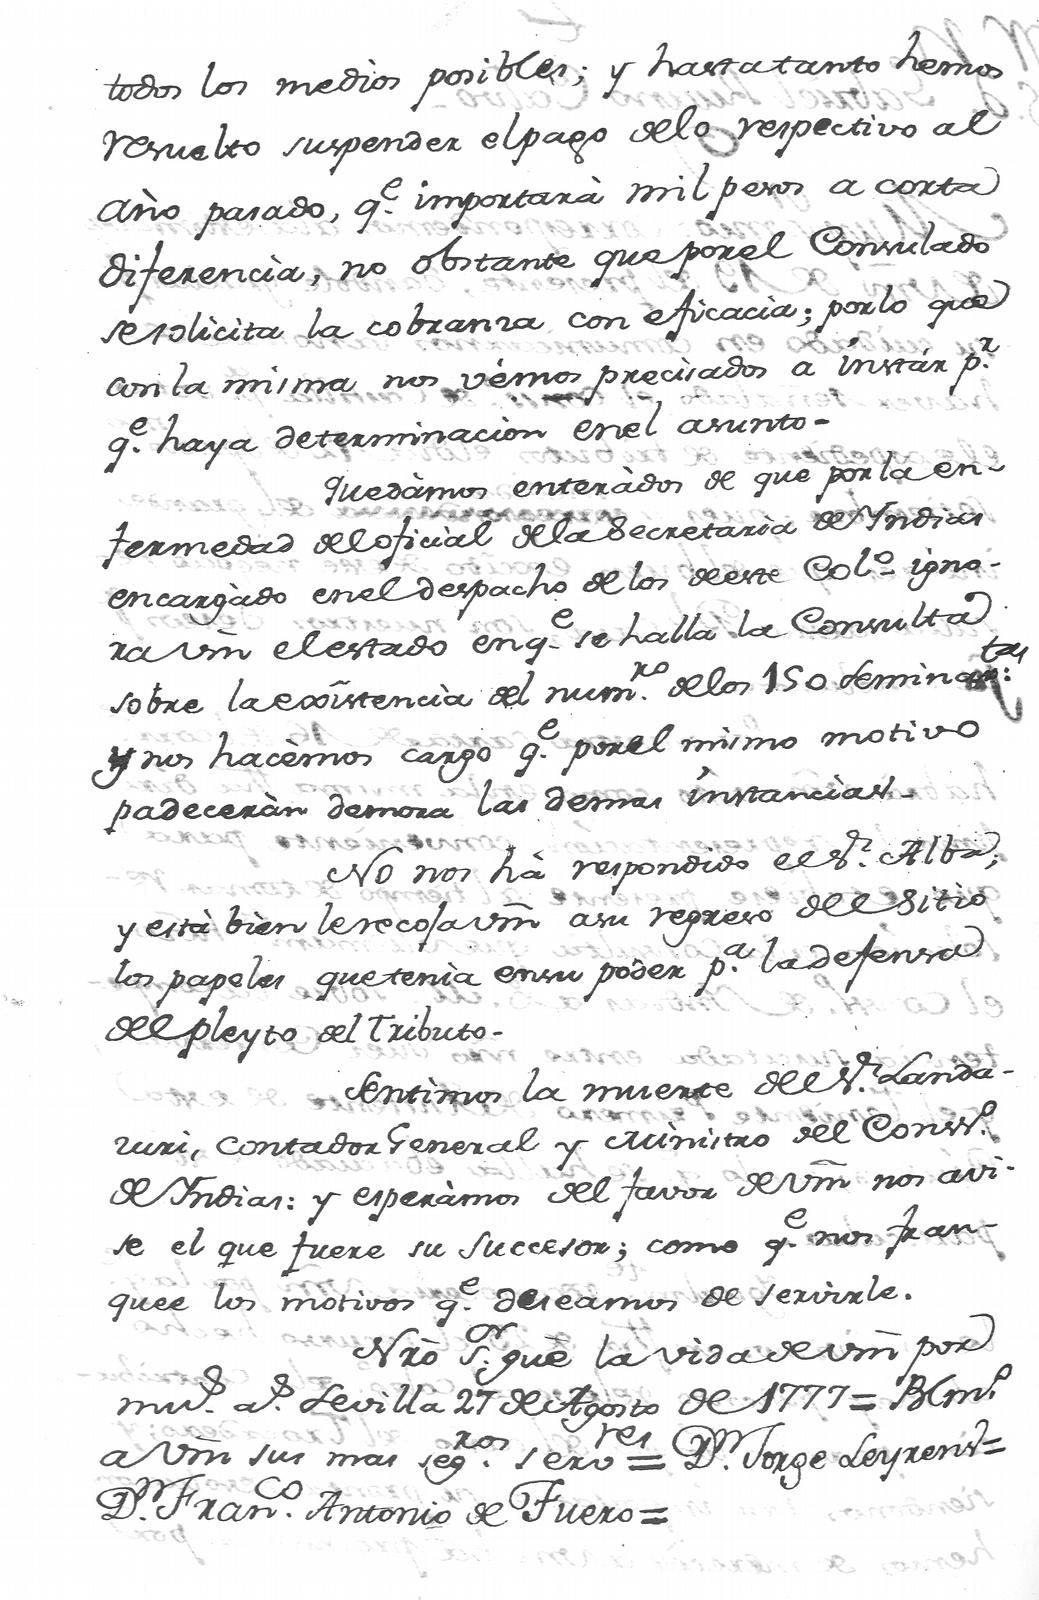 todos los medios posibles; y hasta tanto hemos
resuelto suspender el pago de lo respectivo al
año pasado, q.e importarà mil pesos a corta
diferencia, no obstante que por el Consulado
se solicita la cobranza con eficacia; por lo que
con la misma nos vémos precisados a ínstár p.r
q.e haya determinacion en el asunto-
Quedàmos enteràdos de que por la en-
fermedad del oficial de la Secretarìa de Yndias
encargàdo en el despacho de los de este Col.o igno-
ra Vm̃ el estado en q.e se halla la Consulta
sobre la exîstencia del num.ro de los 150 seminaristas:
y nos hacèmos cargo q.e por el mismo motivo
padeceràn demora las demas ínstancias.-
No nos hà respondido el S.r Alba,
y està bien le recoja Vm̃ a su regreso del Sitio
los papeles que tenìa en su poder p.a la defensa
del pleyto del Tributo-
Sentimos la muerte del S.r Landa-
zuri, contador General y Ministro del Cons.o
de Yndias: y esperàmos del favor de Vm̃ nos avi-
se el que fuere su succesor; como q.e nos fran-
quee los motivos q.e deseamos de servirle.
Nrò S.or guè la vida de Vm̃ por
mu.s a.s Sevilla 27 de Agosto de 1777= BLm.s
a Vm̃ sus mas seg.ros serv.res= D.n Jorge Leyrens=
D.n Fran.co Antonio de Fuero=